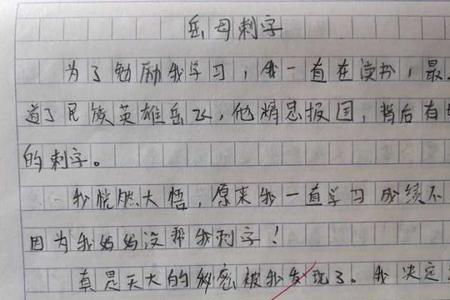 岳母刺字
为了勉励我学习，我一直在读书，最
道了民族英雄岳飞，他精忠报国，背后有
的刺字。
我恍然大悟，原来我一直学习成绩不
因为我妈妈没帮我刺字！
真是天大的秘密被我发现了。我决定